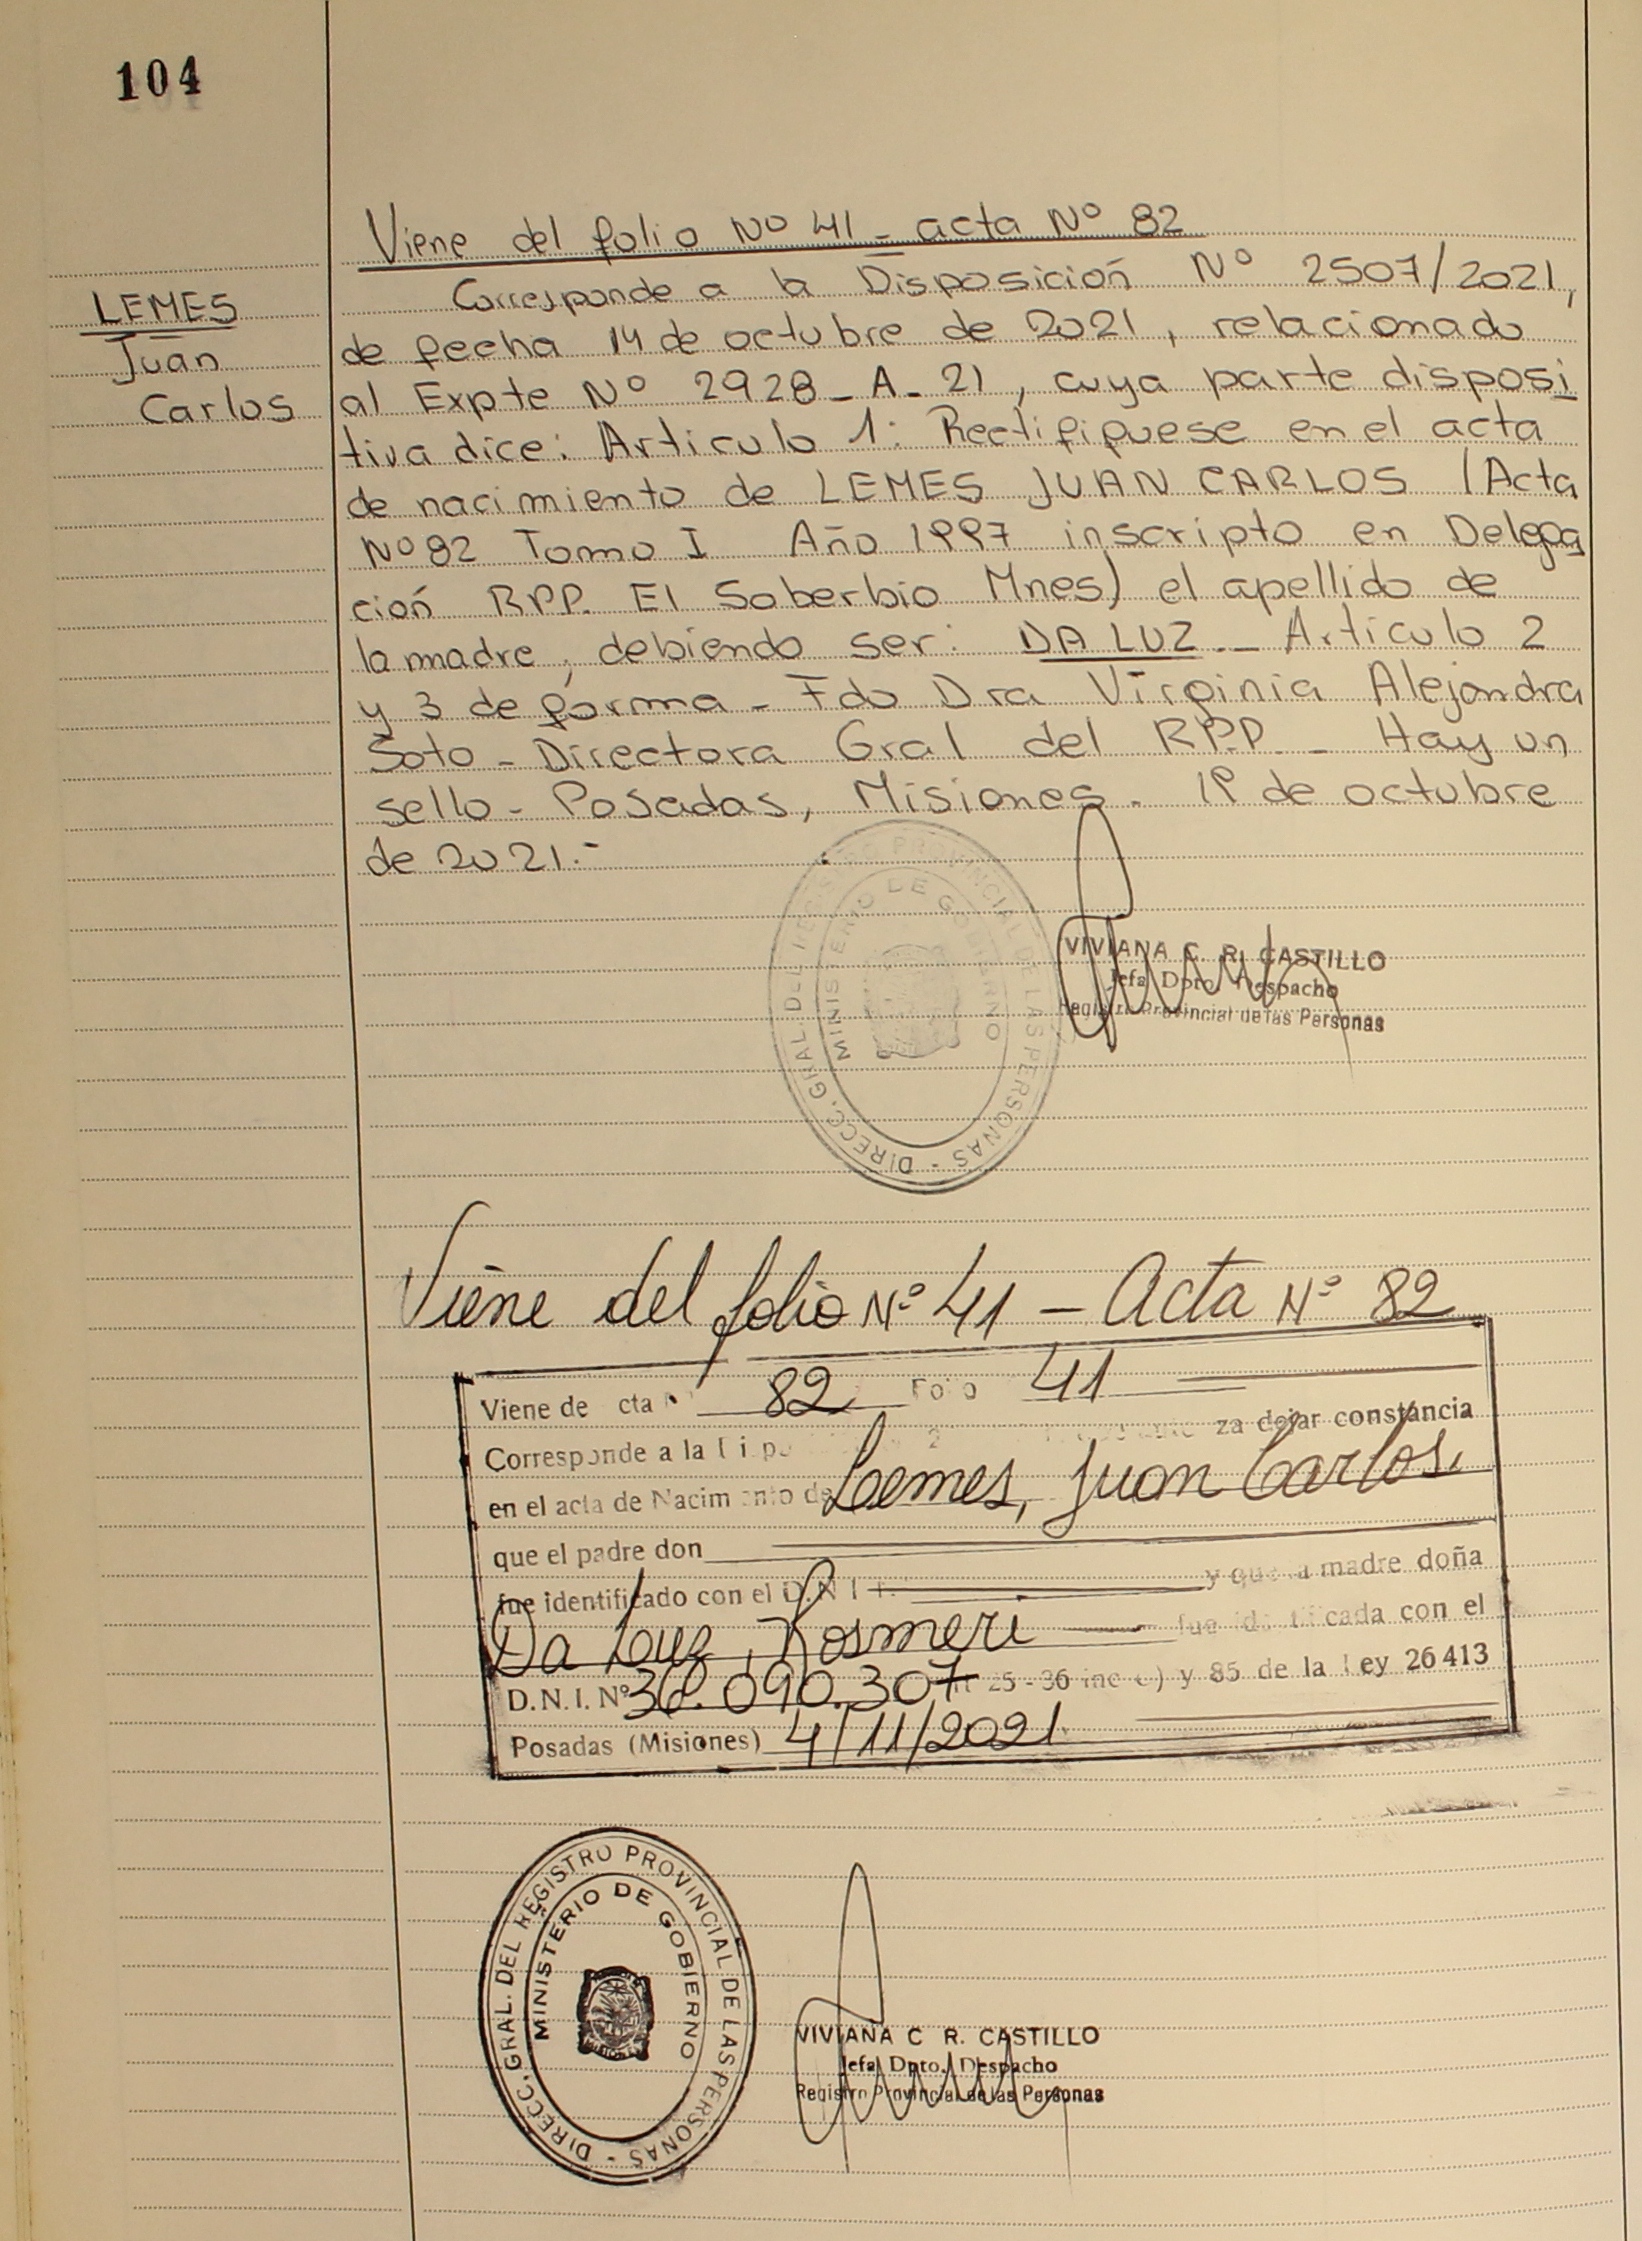 104
Viene del folio Nº 41 - acta Nº 82
LEMES
Juan
Carlos
Corresponde a la Disposición Nº 2507/2021,
de fecha 14 de octubre de 2021, relacionado
al Expte Nº 2928-A-21, cuya parte disposi
tiva dice: Articulo 1: Rectifiquese en el acta
de nacimiento de LEMES JUAN CARLOS (Acta
Nº 82 Tomo I Año 1997 inscripto en Delega
ción RPP. El Soberbio Mnes) el apellido de
la madre, debiendo ser: DA LUZ._ Artículo 2
y 3 de forma - Fdo Dra Virginia Alejandra
Soto - Directora Gral del RPP - Hay un
sello - Posadas, Misiones. 19 de octubre
de 2021.-
DIRECC. GRAL. DEL REGISTRO PROVINCIAL DE LAS PERSONAS -
MINISTERIO DE GOBIERNO
VIVIANA C. R. CASTILLO
Jefa Dpto. Despacho
Registro Provincial de las Personas
Viene del folio Nº 41 - Acta Nº 82
Viene de cta 82 Folio 41
Corresponde a la za dejar constancia
en el acta de Nacimiento de Lemes, Juan Carlos.
que el padre don
fue identificado con el D.N.I. y que la madre doña
Da Luz, Rosmeri fue identificada con el
D.N.I. Nº 36.090.307 25-36 inc c) y 85 de la Ley 26413
Posadas (Misiones) 4/11/2021
DIRECC. GRAL. DEL REGISTRO PROVINCIAL DE LAS PERSONAS -
MINISTERIO DE GOBIERNO
VIVIANA C R. CASTILLO
Jefa Dpto. Despacho
Registro Provincial de las Personas